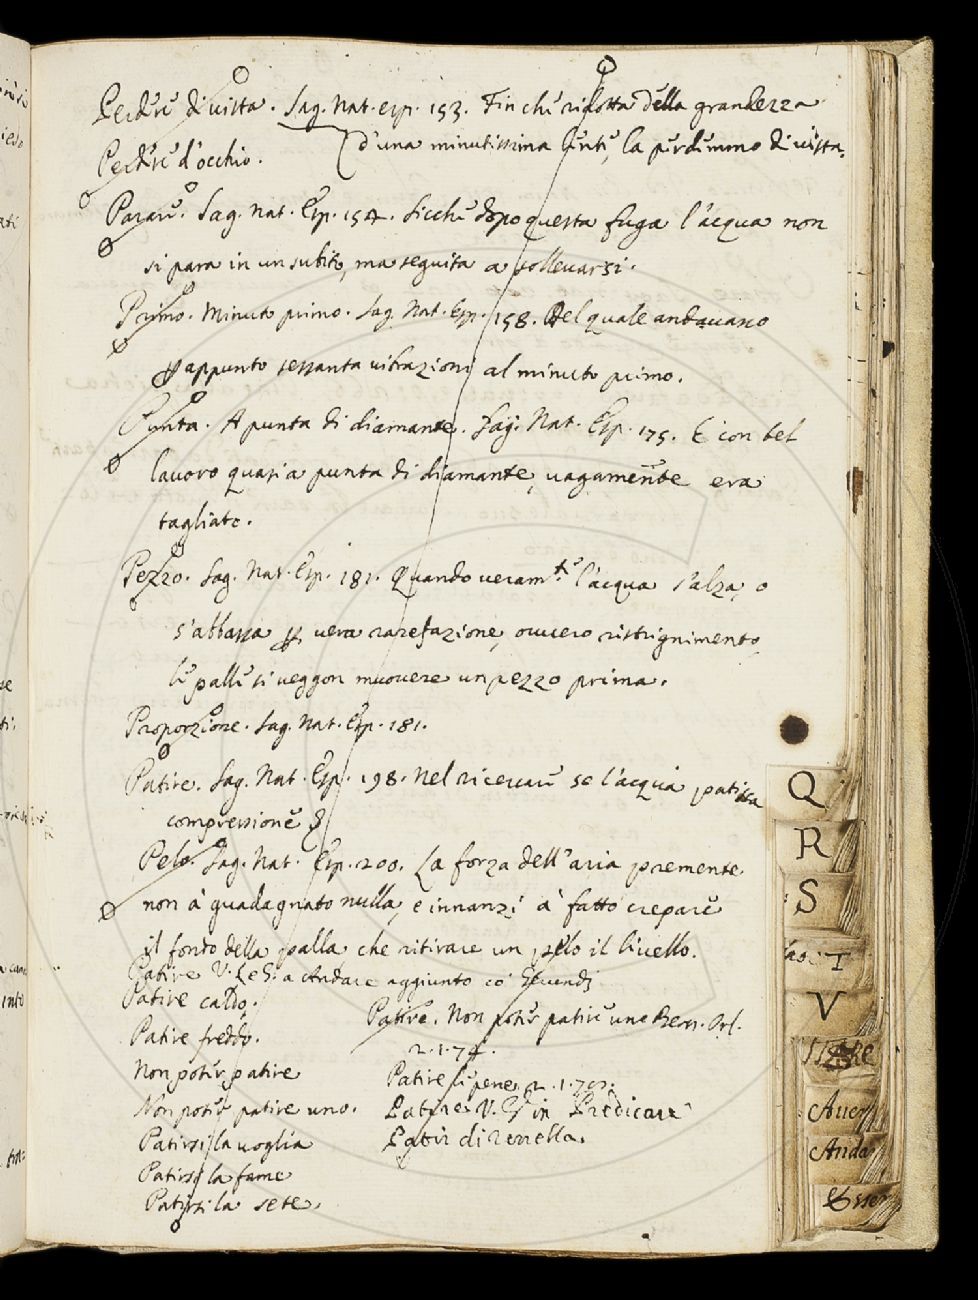 Perdere di vista. Sag. Nat. esp. 153. Finché ridotta della grandezza
d'una minutissima lente, la perdemmo di vista.
Perdere d'occhio.
Parare. Sag. Nat. Esp. 154. Sicché dopo questa fuga l'acqua non
si para in un subito, ma seguita a sollevarsi.
Primo. Minuto primo. Sag. Nat. Esp. 158. Del quale andavano
appunto sessanta vibrazioni al minuto primo.
Punta. A punta di diamante. Sag. Nat. Esp. 175. E con bel
lavoro quasi a punta di diamante, vagamente era
tagliato.
Pezzo. Sag. Nat. Esp. 181. Quando veram.te l'acqua s'alza, o
s'abbassa ꝑ vera rarefazione, ovvero ristrignimento,
le palle si veggon muovere un pezzo prima.
Proporzione. Sag. Nat. Esp. 181.
Patire. Sag. Nat. Esp. 198. Nel ricercare se l'acqua patisca
compressione
Pelo. Sag. Nat. Esp. 200. La forza dell'aria premente
non à guadagnato nulla, e innanzi à fatto crepare
il fondo della palla che ritirare un pelo il livello.
Patire V. Andare aggiunto co'
Patire caldo.
Patire freddo.
Non poter patire
Non poter patire uno.
Patirsi la voglia
Patirsi la fame
Patirsi la sete.
Patire. Non poter patire uno Bern. Orl.
2.1.74.
Patire le pene 2.1.
Patire V. in Predicare
Patir di renella.
Q
R
S
T
V
Aver
Anda
Esser